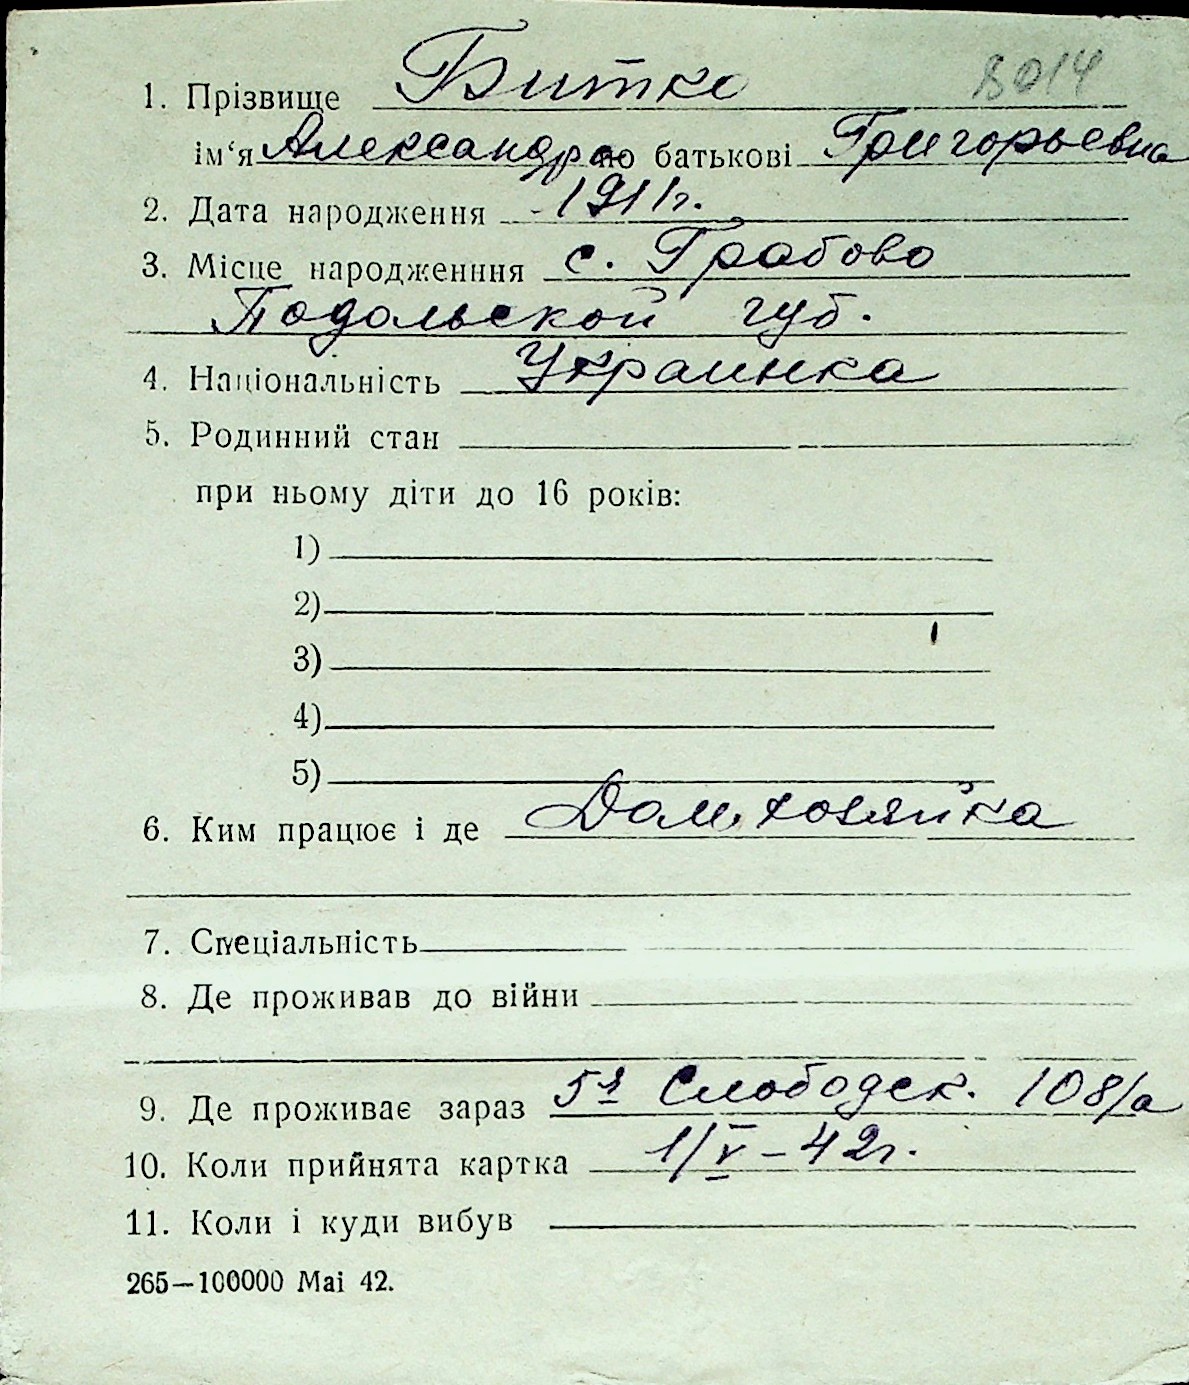 8014
1. Прізвище Битко
ім‘я Александра по батькові Григорьевна
2. Дата народження 1911г.
3. Місце народженння с. Грабово
Подольской губ.
4. Національність Украинка
5. Родинний стан
при ньому діти до 16 років:
1)
2)
3)
4)
5)
6. Ким працює і де Дом. хозяйка
7. Спеціальність
8. Де проживав до війни
9. Де проживає зараз 5я Слободск. 108/а
10. Коли прийнята картка 1/V – 42г.
11. Коли і куди вибув
265—100000 Mai 42.